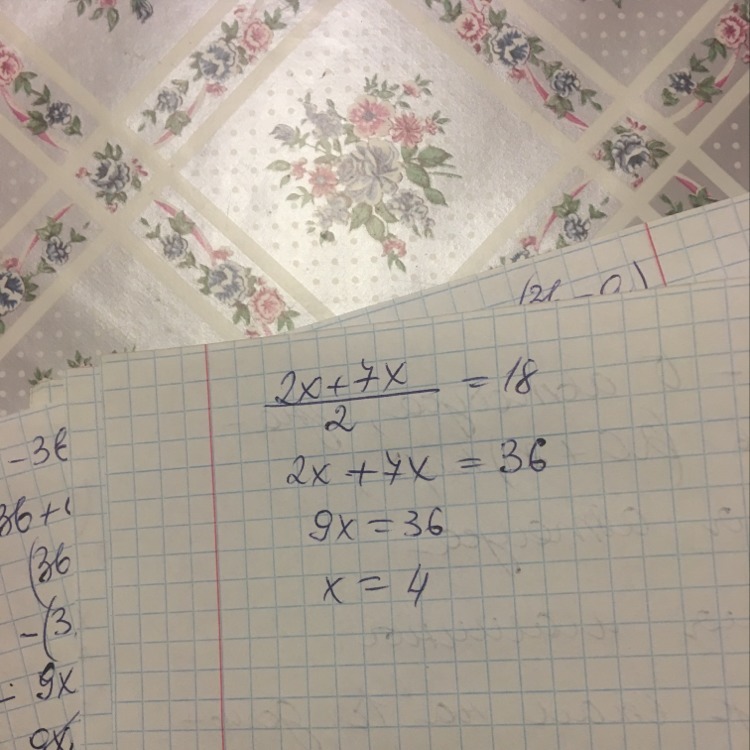 2x+7x / 2 = 18
2x+7x = 36
9x = 36
x = 4
-36
36+
(36
-(3
- 9x
9x